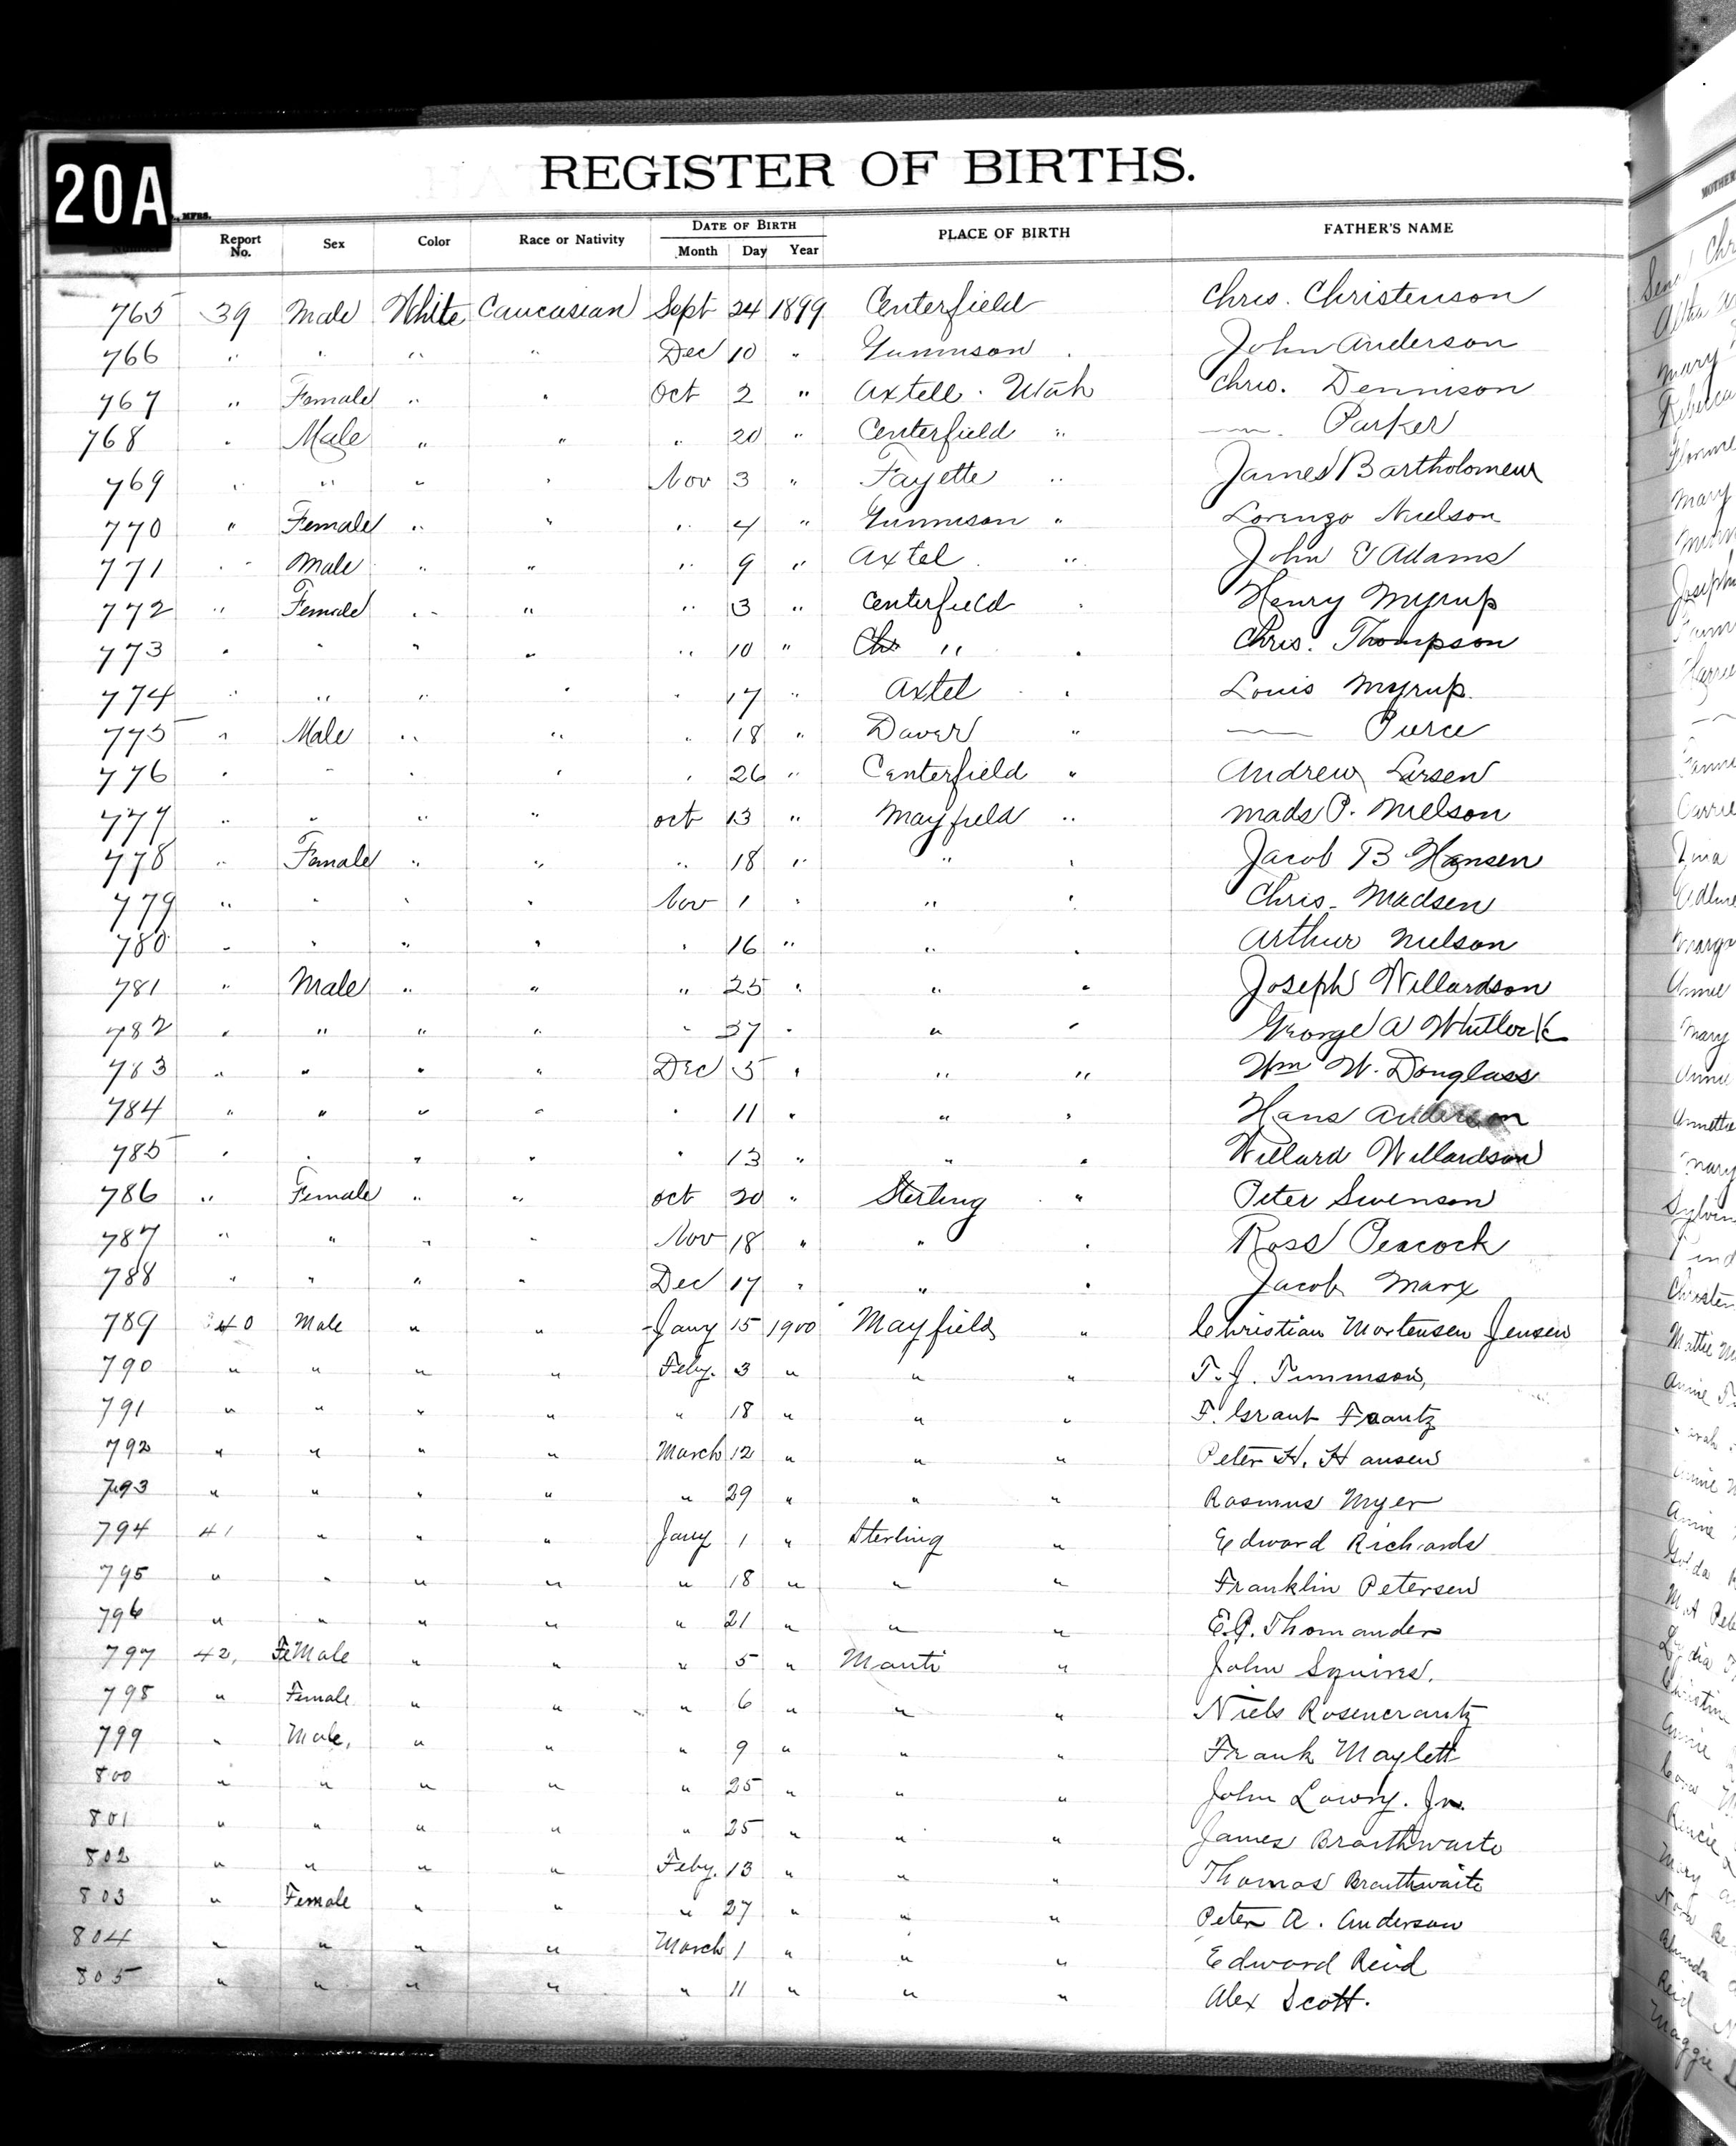 20A
REGISTER OF BIRTHS.
MFRS.
Number Report No. Sex Color Race or Nativity DATE OF BIRTH Month Day Year PLACE OF BIRTH FATHER'S NAME
765 39 Male White Caucasian Sept 24 1899 Centerfield Chris. Christenson
766 " " " " Dec 10 " Gunnison " John Anderson
767 " Female " " Oct 2 " Axtell. Utah Chris. Dennison
768 " Male " " " 20 " Centerfield " —— Parker
769 " " " " Nov 3 " Fayette " James Bartholomew
770 " Female " " " 4 " Gunnison " Lorenzo Nielson
771 " Male " " " 9 " Axtel " John E Adams
772 " Female " " " 3 " Centerfield " Henry Myrup
773 " " " " " 10 " Chr " " Chris. Thompson
774 " " " " " 17 " Axtel " Louis Myrup.
775 " Male " " " 18 " Dover " —— Pierce
776 " " " " " 26 " Centerfield " Andrew Larsen
777 " " " " Oct 13 " Mayfield " Mads P. Nielson
778 " Female " " " 18 " " " Jacob B Hansen
779 " " " " Nov 1 " " " Chris. Madsen
780 " " " " " 16 " " " Arthur Nielson
781 " Male " " " 25 " " " Joseph Willardson
782 " " " " " 27 " " " George A Whitlock
783 " " " " Dec 5 " " " Wm W. Douglass
784 " " " " " 11 " " " Hans Anderson
785 " " " " " 13 " " " Willard Willardson
786 " Female " " Oct 20 " Sterling " Peter Swenson
787 " " " " Nov 18 " " " Ross Peacock
788 " " " " Dec 17 " " " Jacob Marx
789 40 Male " " Jany 15 1900 Mayfield " Christian Mortensen Jensen
790 " " " " Feby. 3 " " " T. J. Timmson,
791 " " " " " 18 " " " F. Grant Frantz
792 " " " " March 12 " " " Peter H. Hansen
793 " " " " " 29 " " " Rasmus Myer
794 41 " " " Jany 1 " Sterling " Edward Richards
795 " " " " " 18 " " " Franklin Petersen
796 " " " " " 21 " " " E.G. Thomander
797 42, FeMale " " " 5 " Manti " John Squires.
798 " Female " " " 6 " " " Niels Rosencrantz
799 " Male, " " " 9 " " " Frank Maylett
800 " " " " " 25 " " " John Lowry. Jr.
801 " " " " " 25 " " " James Braithwaite
802 " " " " Feby. 13 " " " Thomas Braithwaite
803 " Female " " " 27 " " " Peter A. Anderson
804 " " " " March 1 " " " Edward Reid
805 " " " " " 11 " " " Alex Scott.